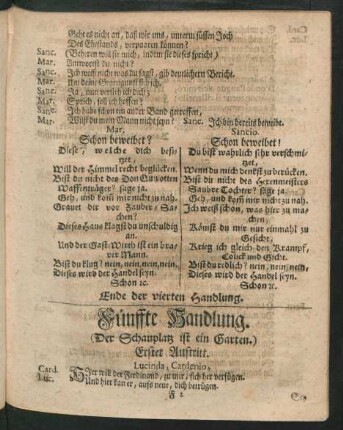 Geht es nicht an, daß wir uns, unterm süssen Joch
Des Ehestands, verpaaren können?
Sanc. (Behexen will sie mich, indem sie dieses spricht)
Mar. Antwortst du nicht?
Sanc. Ich weiß nicht was du sagst, gib deutlichern Bericht.
Mar.
Sanc. Ja, nun verließ ich dich;
Mar. Sprich, soll ich hoffen?
Sanc. Ich habe schon ein ander Band getroffen,
Mar. Willst du mein Mann nicht seyn? Sanc. Ich bin bereits beweibt.
Mar.
Schon beweibet?
Diese, welche dich besitzet,
Will der Himmel recht beglücken.
Bist du nicht des Don Quixotten
Waffenträger? sage ja.
Geh, und komm mir nicht zu nah.
Grauet dir vor Zauber-Sachen?
Dieses Haus klagst du unschuldig
an.
Und der Gast-Wirth ist ein braver
Mann.
Bist du klug? nein, nein, nein, nein,
Dieses wird der Handel seyn.
Schon ꝛc.
Sancio.
Schon beweibet!
Du bist wahrlich sehr verschmitzet,
Wenn du mich denkst zu berücken.
Bist du nicht des Herenmeisters
Saubre Tochter? sage ja.
Geh, und komm mir nicht zu nah.
Ich weiß schon, was hier zu machen;
Kömst du mir nur einmahl zu
Gesicht,
Krieg ich gleich den Krampf,
Colick und Gicht.
Bist du redlich? nein, nein, nein,
Dieses wird der Handel seyn.
Schon ꝛc.
Ende der vierten Handlung.
Fünffte Handlung.
(Der Schauplatz ist ein Garten.)
Erster Auftritt.
Lucinda, Cardenio,
Card. Hier will der Ferdinand, zu mir, sich her verfügen.
Luc. Und hier kan er, aufs neue, dich betrügen.
F 2